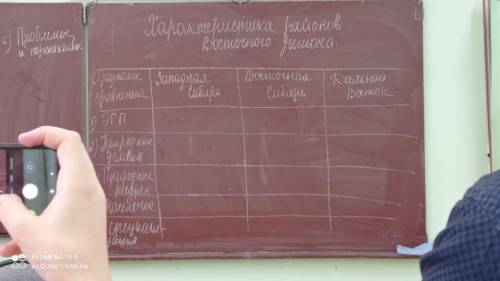 6) Проблемы
и перспективы
Характеристика районов
Восточного региона.
Признаки
сравнения
Западная
Сибирь
Восточная
Сибирь
Дальний
Восток
1) ЭГП
2) Природные
условия
Природные
население
специали-
зация
REDMI NOTE 8
AI QUAD CAMERA